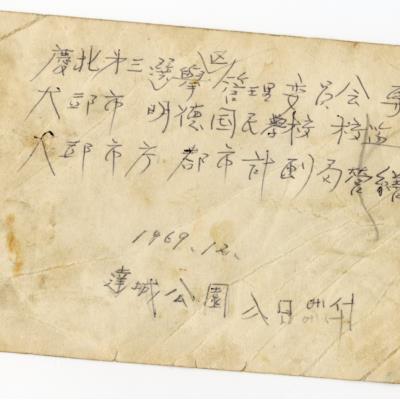 慶北第三選擧区管理委員会
大邱市 明德国民學校 校
大邱市庁 都市計劃局 營繕
1969.12.
達城公園 入口에서